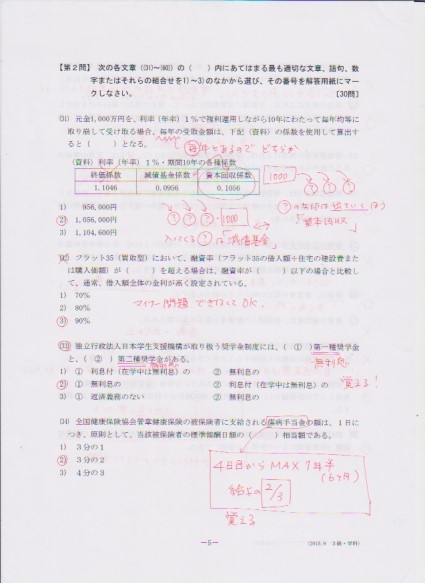 【第２問】 次の各文章（(31)～(60)）の（　）内にあてはまる最も適切な文章、語句、数
字またはそれらの組合せを1)～3)のなかから選び、その番号を解答用紙にマー
クしなさい。 [30問]
(31) 元金1,000万円を、利率（年率）１％で複利運用しながら10年にわたって毎年均等に
取り崩して受け取る場合、毎年の受取金額は、下記〈資料〉の係数を使用して算出す
ると（　）となる。
毎年とあるので どちらか
〈資料〉利率（年率）１％・期間10年の各種係数
終価係数 減債基金係数 資本回収係数
1.1046 0.0956 0.1056
1000
? ? ?
1) 956,000円
2) 1,056,000円
3) 1,104,600円
? ? ? 1000
入ってくる ? は「減債基金」
? のお金は 出ていくほう
「資本回収」
(32) フラット35（買取型）において、融資率（フラット35の借入額÷住宅の建設費また
は購入価額）が（　）を超える場合は、融資率が（　）以下の場合と比較し
て、通常、借入額全体の金利が高く設定されている。
1) 70%
2) 80%
3) 90%
マイナー問題 できなくてOK.
(33) 独立行政法人日本学生支援機構が取り扱う奨学金制度には、（ ① ）第一種奨学金
と、（ ② ）第二種奨学金がある。
無利息
1) ① 利息付（在学中は無利息）の ② 無利息の
2) ① 無利息の ② 利息付（在学中は無利息）の
3) ① 返済義務のない ② 無利息の
覚える！
(34) 全国健康保険協会管掌健康保険の被保険者に支給される傷病手当金の額は、１日に
つき、原則として、当該被保険者の標準報酬日額の（　）相当額である。
1) ３分の１
2) ３分の２
3) ４分の３
4日目から MAX 1年半
給与の 2/3
覚える
―5―
(2015.9 3級・学科)